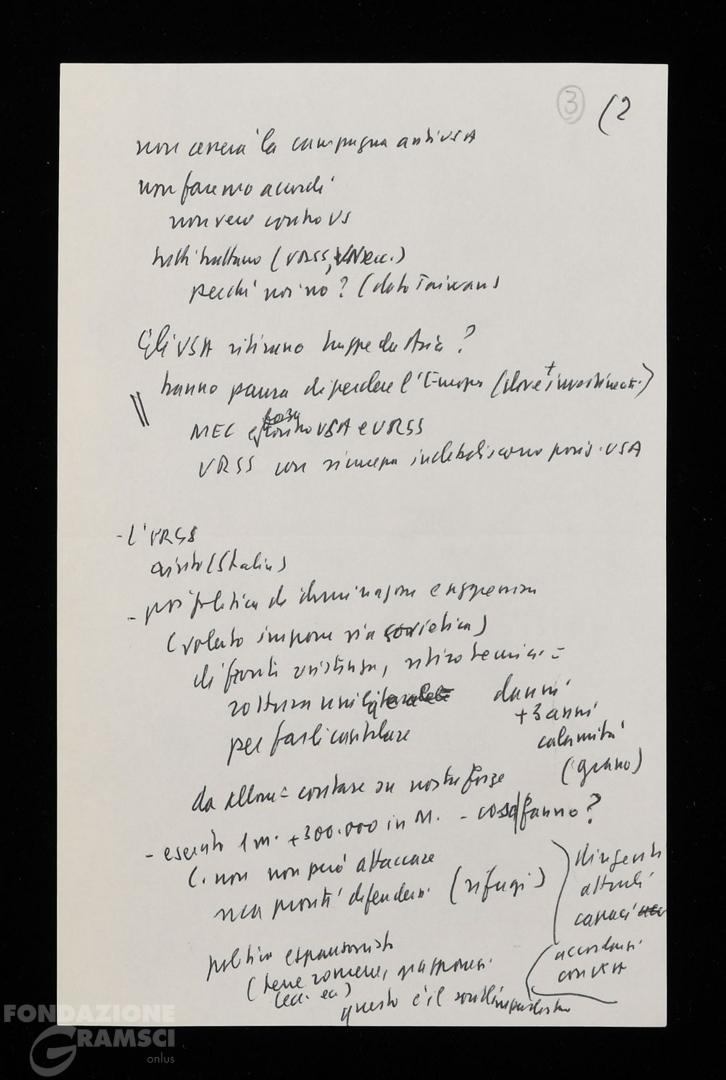 3 (2
non cesserà la campagna antiUSA
non faremo accordi
non vero contro VS
tutti trattano (URSS, ecc.)
perché noi no? (dato Taiwan)
Gli USA ritirano truppe da Asia?
hanno paura di perdere l'Europa (dove + investimenti)
MEC e forza contro USA e URSS
URSS con sicurezza indeboliscono posiz. USA
- L'URSS
aiuto (Stalin)
- poi politica di dominazione e aggressione
(voluto imporre via sovietica)
di fronte resistenza, ritiro tecnici =
rottura unilaterale danni
+ 3 anni
per farli capitolare calamità
(grano)
da allora = contare su nostre forze
- esercito 1 m. + 300.000 in M. - cosa fanno?
(. non può attaccare
ma pronti difendersi (rifugi)
dirigenti
attuali
capaci
accordarsi
con USA
politica espansionista
(terre romene, giapponesi
ecc. ecc.)
questo è il socialimperialismo
FONDAZIONE
GRAMSCI
onlus